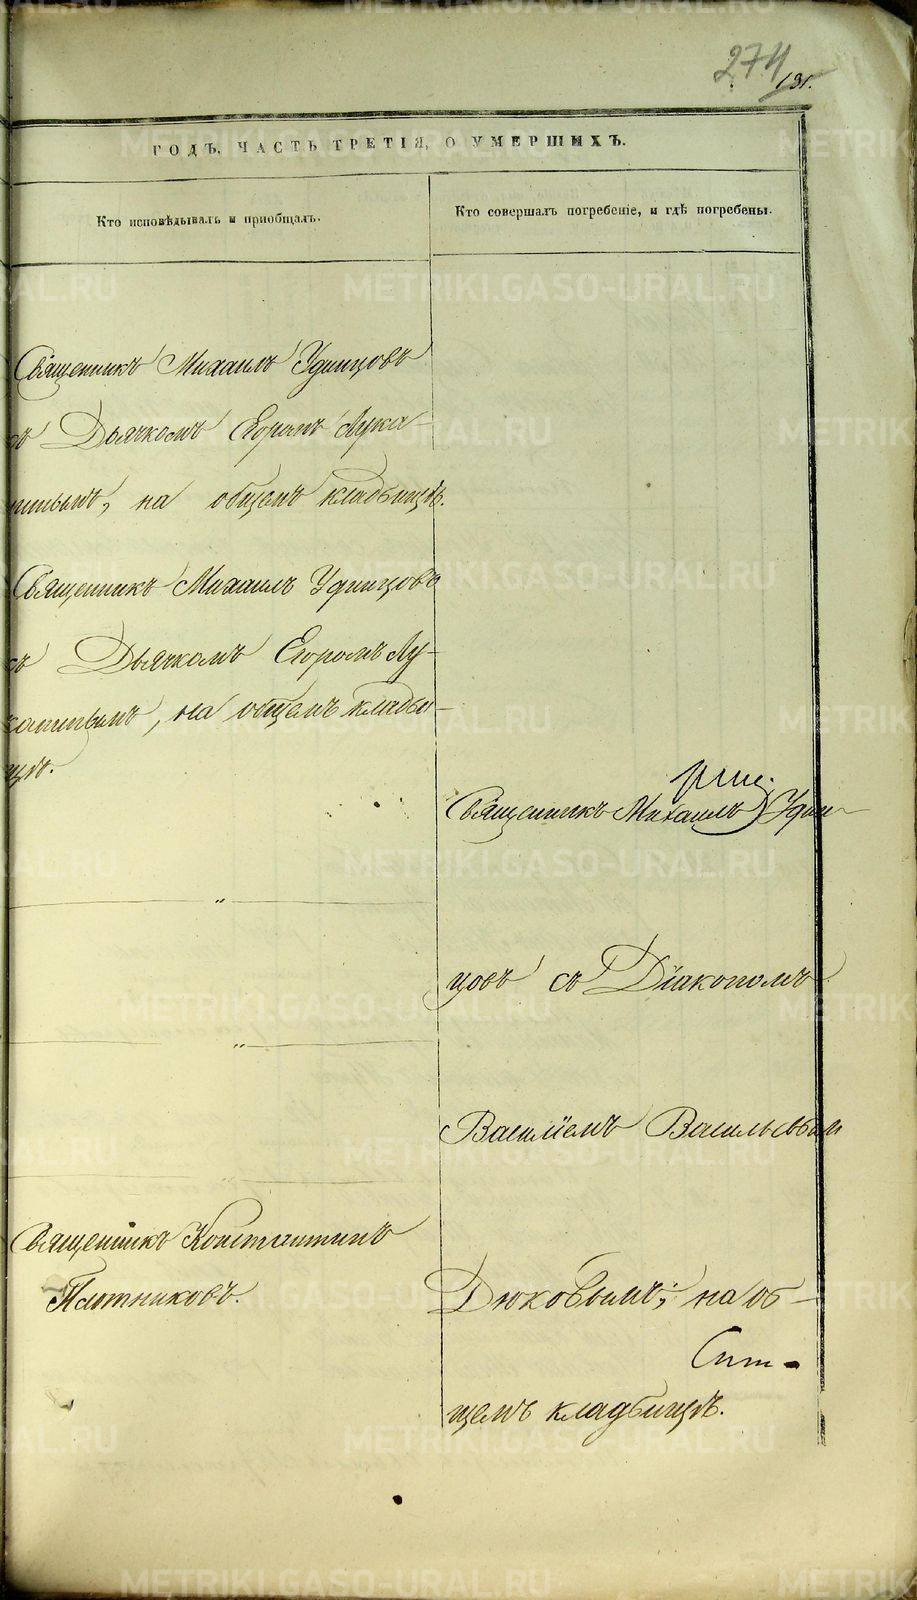 274
131.
ГОДЪ, ЧАСТЬ ТРЕТІЯ, О УМЕРШИХЪ.
Кто исповѣдывалъ и пріобщалъ.
Кто совершалъ погребеніе, и гдѣ погребены.
Священникъ Михаилъ Удинцовъ
съ Дьячкомъ Егоромъ Лука-
нинымъ, на общемъ кладбищѣ.
Священникъ Михаилъ Удинцовъ
съ Дьячкомъ Егоромъ Лу-
канинымъ, на общемъ кладби-
щѣ.
Священникъ Михаилъ Удин-
цовъ съ Діакономъ
Василіемъ Васильевым
Дюковымъ, на об-
щемъ кладбищѣ.
Священникъ Константинъ
Плотниковъ.
METRIKI.GASO-URAL.RU